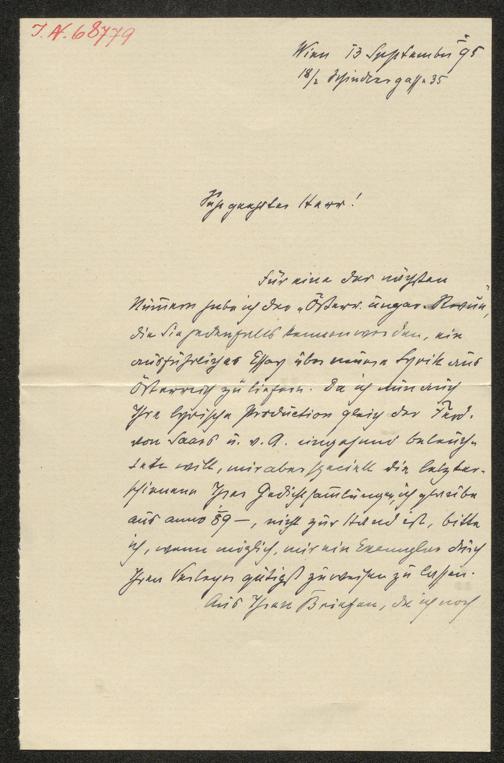 J.N. 68779
Wien 13 September 95
18/2 Schindlergasse 35
Sehr geehrter Herr!
Für eine der nächsten
Nummern habe ich der „Österr. ungar. Revue",
die Sie jedenfalls kennen werden, ein
ausführliches Essay über neuere Lyrik aus
Österreich zu liefern. Da ich nun auch
Ihre lyrische Production gleich der Ferd.
von Saars u. v. A. eingehend beleuch-
ten will, mir aber speciell die letzter-
schienene Ihrer Gedichtsammlungen, ich glaube
aus anno 89 –, nicht zur Hand ist, bitte
ich, wenn möglich, mir ein Exemplar durch
Ihren Verleger gütigst zuweisen zu lassen.
Aus Ihren Briefen, die ich noch